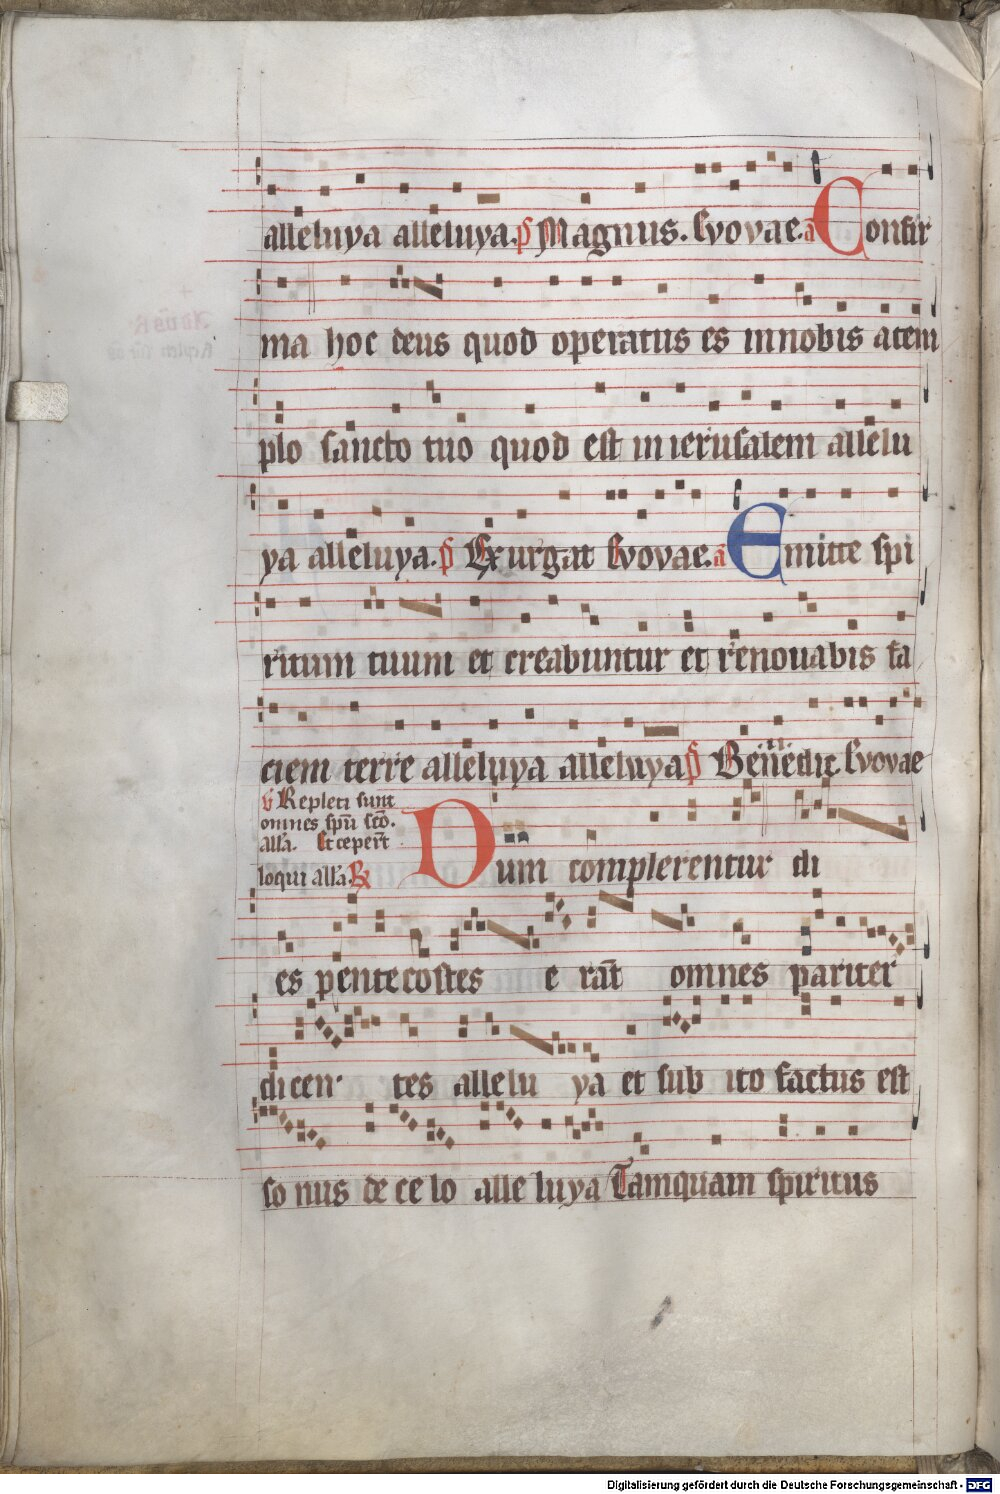 alleluya alleluya. ps Magnus. Evovae. a Confir
ma hoc deus quod operatus es in nobis a tem
plo sancto tuo quod est in ierusalem allelu
ya alleluya. ps Exurgat Evovae. a Emitte spi
ritum tuum et creabuntur et renouabis fa
ciem terre alleluya alleluya ps Benedic Evovae
v Repleti sunt
omnes spū scō.
all'a. Et ceper̄t
loqui all'a. R
Dum complerentur di
es pentecostes e rāt omnes pariter
dicen tes allelu ya et sub ito factus est
so nus de ce lo alle luya Tamquam spiritus
Digitalisierung gefördert durch die Deutsche Forschungsgemeinschaft - DFG